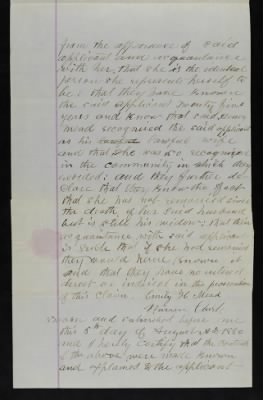 from the appearance of said
applicant and acquaintance
with her, that she is the identical
person she represents herself to
be: that they have known
the said applicant twenty nine
years and know that said Henry
Mead recognized the said applicant
as his lawful wife
and that she was so recognized
in the community in which they
resided: and they further de-
clare that they know the fact
that she has not remarried since
the death of her said husband
but is still his widow; that their
acquaintance with said applicant
is such that if she had remarried
they would have known it
and that they have no interest
direct or indirect in the prosecution
of this claim. Emily H. Mead
Warren
Sworn and subscribed before me
this 5th day of August A.D. 1880
and I hereby certify that the contents
of the above were made known
and explained to the applicant